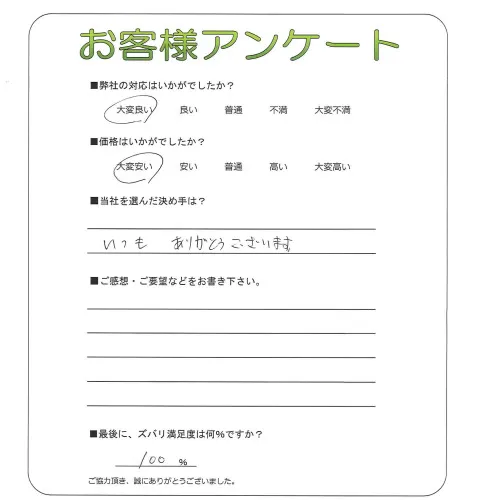 お客様アンケート
■弊社の対応はいかがでしたか？
大変良い 良い 普通 不満 大変不満
■価格はいかがでしたか？
大変安い 安い 普通 高い 大変高い
■当社を選んだ決め手は？
いつも ありがとうございます
■ご感想・ご要望などをお書き下さい。
■最後に、ズバリ満足度は何%ですか？
100 %
ご協力頂き、誠にありがとうございました。